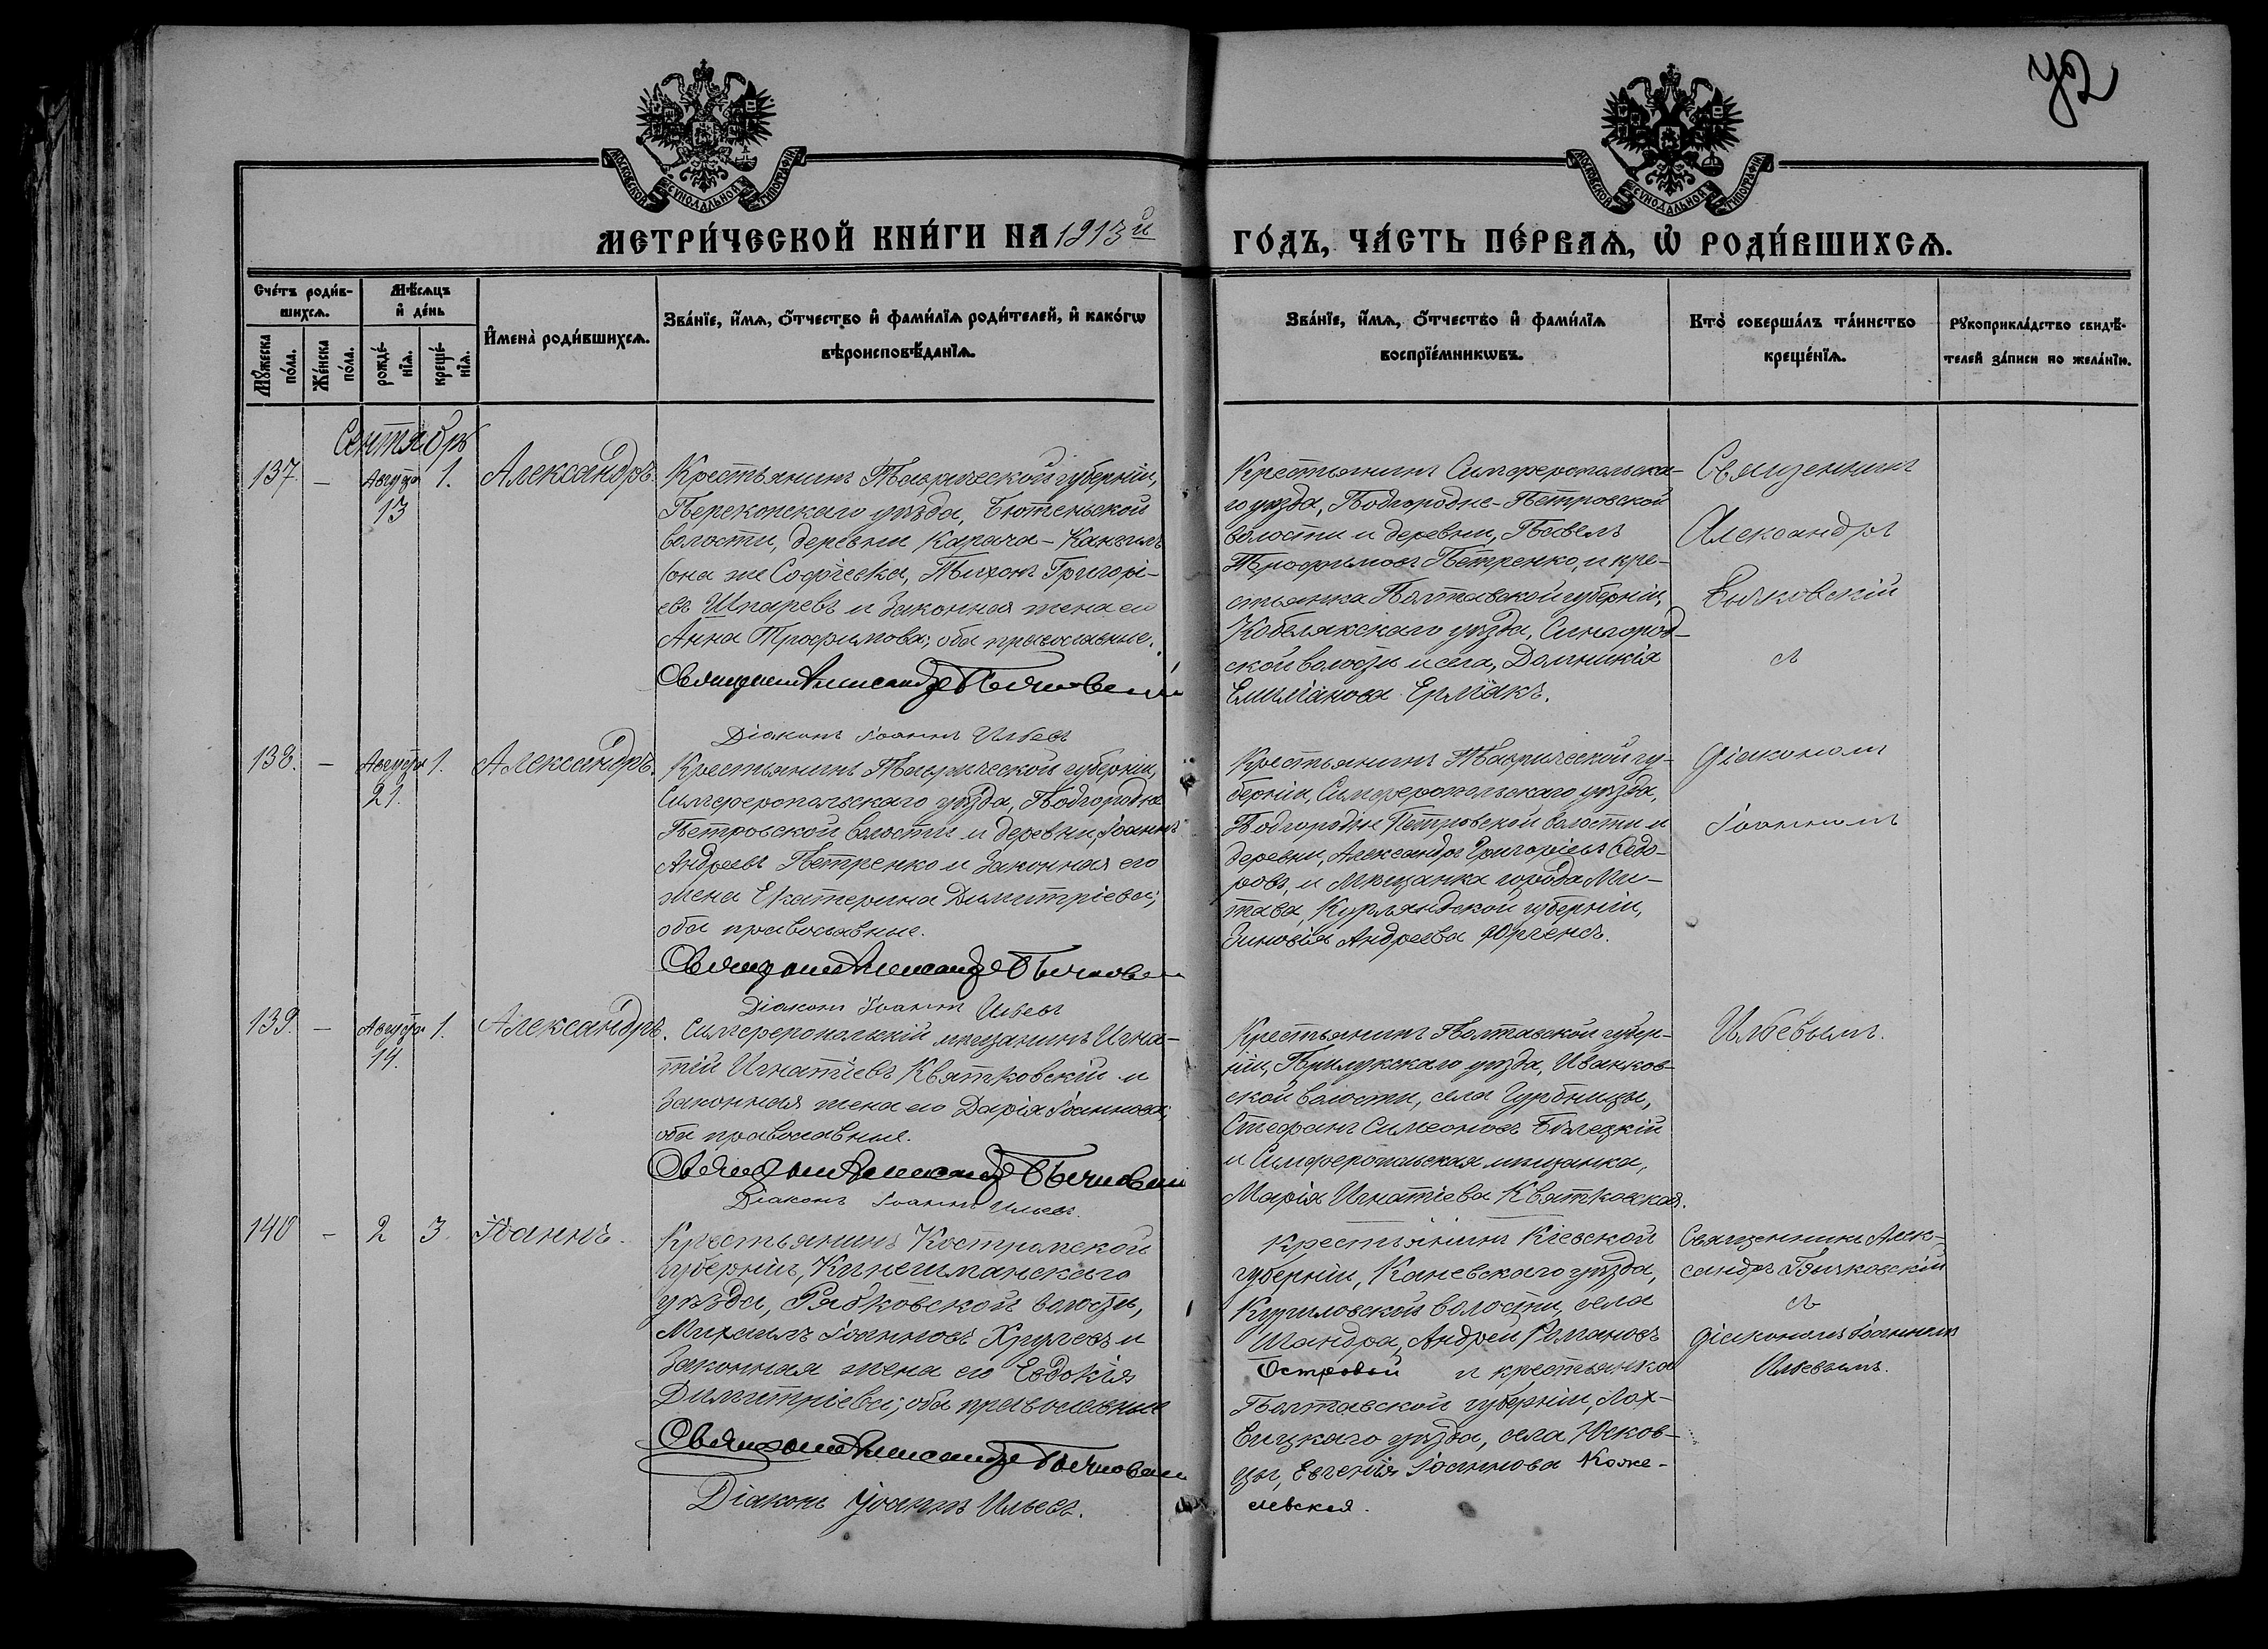 У2
МОСКОВСКОЙ СУНОДАЛЬНОЙ ТИПОГРАФІИ
МОСКОВСКОЙ СУНОДАЛЬНОЙ ТИПОГРАФІИ
МЕТРИ́ЧЕСКОЙ КНИ́ГИ НА 1913й
ГО́ДЪ, ЧА́СТЬ ПЕ́РВАѦ, Ѡ҆ РОДИ́ВШИХСѦ.
Сче́тъ роди́в-
шихсѧ.
Мѣ́сѧцъ
и҆ де́нь
Мꙋ́жеска по́ла.
Же́нска по́ла.
рожде́-
нїѧ.
креще́-
нїѧ.
И҆мена̀ роди́вшихсѧ.
Зва́нїе, и҆́мѧ, ѻ҆́тчество и҆ фами́лїѧ роди́телей, и҆ како́гѡ
вѣроисповѣ́данїѧ.
Зва́нїе, и҆́мѧ, ѻ҆́тчество и҆ фами́лїѧ
воспрїе́мникѡвъ.
Кто̀ соверша́лъ та́инство
креще́нїѧ.
Рꙋкоприкла́дство свидѣ́-
телей за́писи по жела́нїю.
Сентябрь
137. – Августа 13 1. Александръ.
Крестьянинъ Таврической губерніи,
Перекопскаго уѣзда, Бютеньской
волости, деревни Карача-Кангилъ
(она же Софіевка, Тихонъ Григорі-
евъ Шпаревъ и законная жена его
Анна Трофимова; оба православные.
Священникъ Александръ Бычковскій
Діаконъ Іоаннъ Ильевъ
Крестьянинъ Симферопольска-
го уѣзда, Подгородне-Петровской
волости и деревни, Павелъ
Трофимовъ Петренко, и кре-
стьянка Полтавской губерніи,
Кобелякскаго уѣзда,
ской волости и села, Домникія
Емиліанова Ермакъ.
Священникъ
Александръ
Бычковскій
съ
138. – Августа 21. 1. Александръ.
Крестьянинъ Таврической губерніи,
Симферопольскаго уѣзда, Подгородне
Петровской волости и деревни, Іоаннъ
Андреевъ Петренко и законная его
жена Екатерина Димитріева;
оба православные.
Священникъ Александръ Бычковскій
Діаконъ Іоаннъ Ильевъ
Крестьянинъ Таврической гу-
берніи, Симферопольскаго уѣзда,
Подгородне Петровской волости и
деревни, Александръ Григоріевъ Сидо-
ровъ, и мѣщанка города Ми-
тава, Курляндской губерніи,
Зиновія Андреева Юргенсъ.
діакономъ
Іоанномъ
139. – Августа 14. 1. Александръ.
Симферопольскій мѣщанинъ Игна-
тій Игнатіевъ Квятковскій и
законная жена его Дарія Іоаннова;
оба православные.
Священникъ Александръ Бычковскій
Діаконъ Іоаннъ Ильевъ.
Крестьянинъ Полтавской губер-
ніи, Прилукскаго уѣзда, Иванков-
ской волости, села Гурбинцы,
Стефанъ Симеоновъ Бѣлецкій
и Симферопольская мѣщанка,
Марія Игнатіева Квятковская.
Ильевымъ.
140 – 2 3. Іоаннъ.
Крестьянинъ Костромской
губерніи, Кинешманскаго
уѣзда, Рябковской волости,
Михаилъ Іоанновъ Хругевъ и
законная жена его Евдокія
Димитріева; оба православные
Священникъ Александръ Бычковскій
Діаконъ Іоаннъ Ильевъ.
Крестьянинъ Кіевской
губерніи, Каневскаго уѣзда,
Куриловской волости, села
Шандра, Андрей Романовъ
Островый и крестьянка
Полтавской губерніи, Лох-
вицкаго уѣзда, села Юсков-
цы, Евгенія Іоаннова Коже-
левская.
Священникъ Алек-
сандръ Бычковскій
съ
діакономъ Іоанномъ
Ильевымъ.